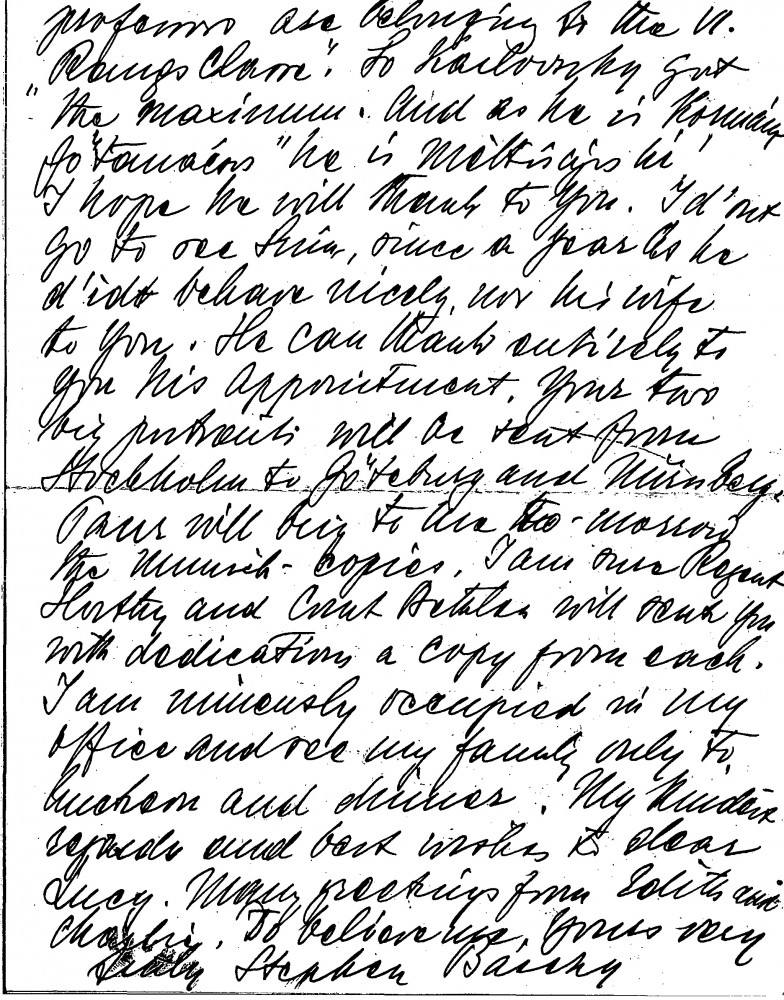 professors are belonging to the V.
"Rangsclasse". So Karlovszky got
the maximum. And as he is Kormány
fő "tanácsos" he is Méltóságos 
I hope he will thank to You. I d'ont
go to see him, since a year as he
d'idt behave nicely, nor his wife
to You. He can thank entirely to
You his Appointment. Your two
big portraits will be sent from
Stockholm to Göteburg and Nürnberg.
Paur will bring to me to-morrow
the Munich-copies. I am sure Regent
Horthy and Count Bethlen will send you
with dedications a copy from each.
I am occupied in my
office and see my family only to
luncheon and dinner. My kindest
regards and best wishes to dear
Lucy. Many greetings from Edith and
Charlie. Do believe me, Yours very
truly Stephen Bárczy